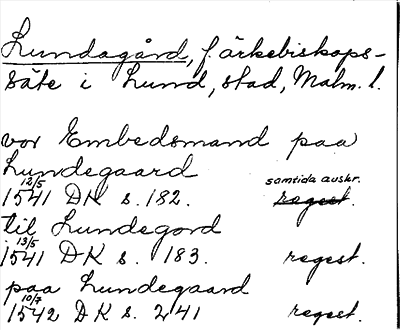 Lundagård, f. ärkebiskops-
säte i Lund, stad, Malm. l.
vor Embedsmand paa
Lundegaard
12/5 samtida avskr.
1541 DK s. 182. regest.
til Lundegord
13/5
1541 DK s. 183. regest.
paa Lundegaard
10/7
1542 DK s. 241 regest.